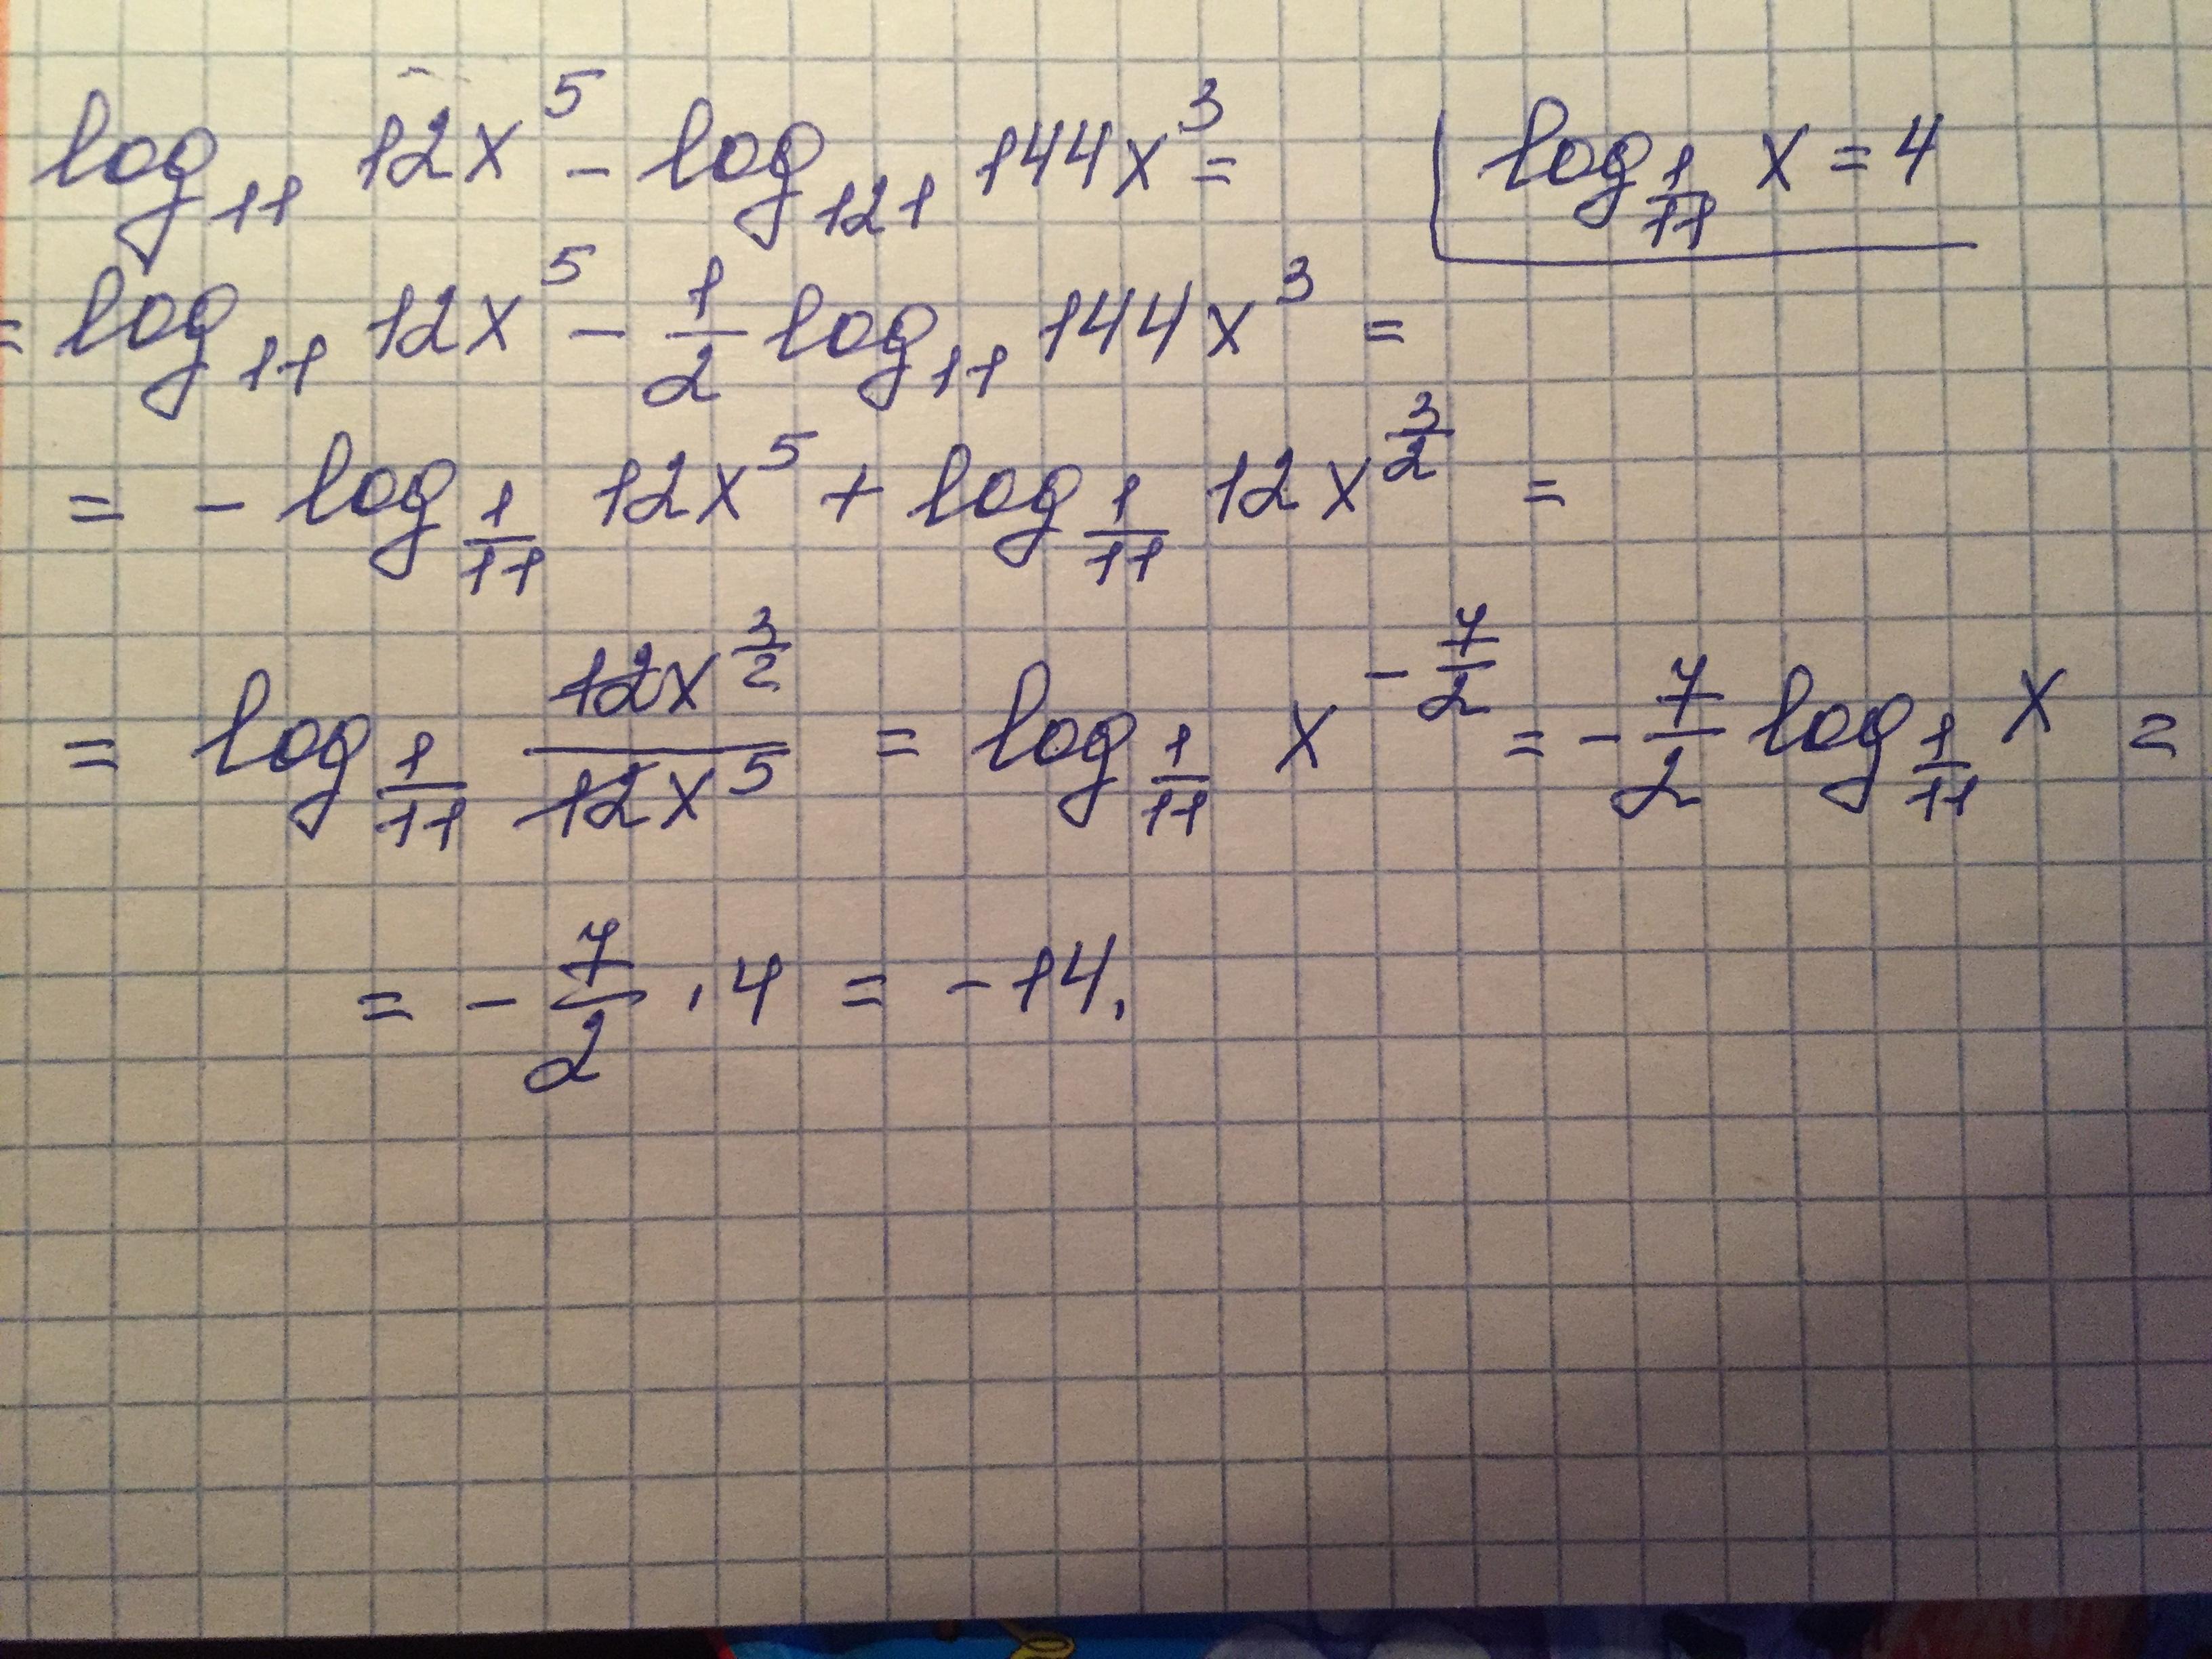 log₁₁ 12x⁵ - log₁₂₁ 144x³ = | log_{1/11} x = 4
= log₁₁ 12x⁵ - 1/2 log₁₁ 144x³ =
= - log_{1/11} 12x⁵ + log_{1/11} 12x^{3/2} =
= log_{1/11} (12x^{3/2})/(12x⁵) = log_{1/11} x^{-7/2} = -7/2 log_{1/11} x =
= - 7/2 · 4 = -14.